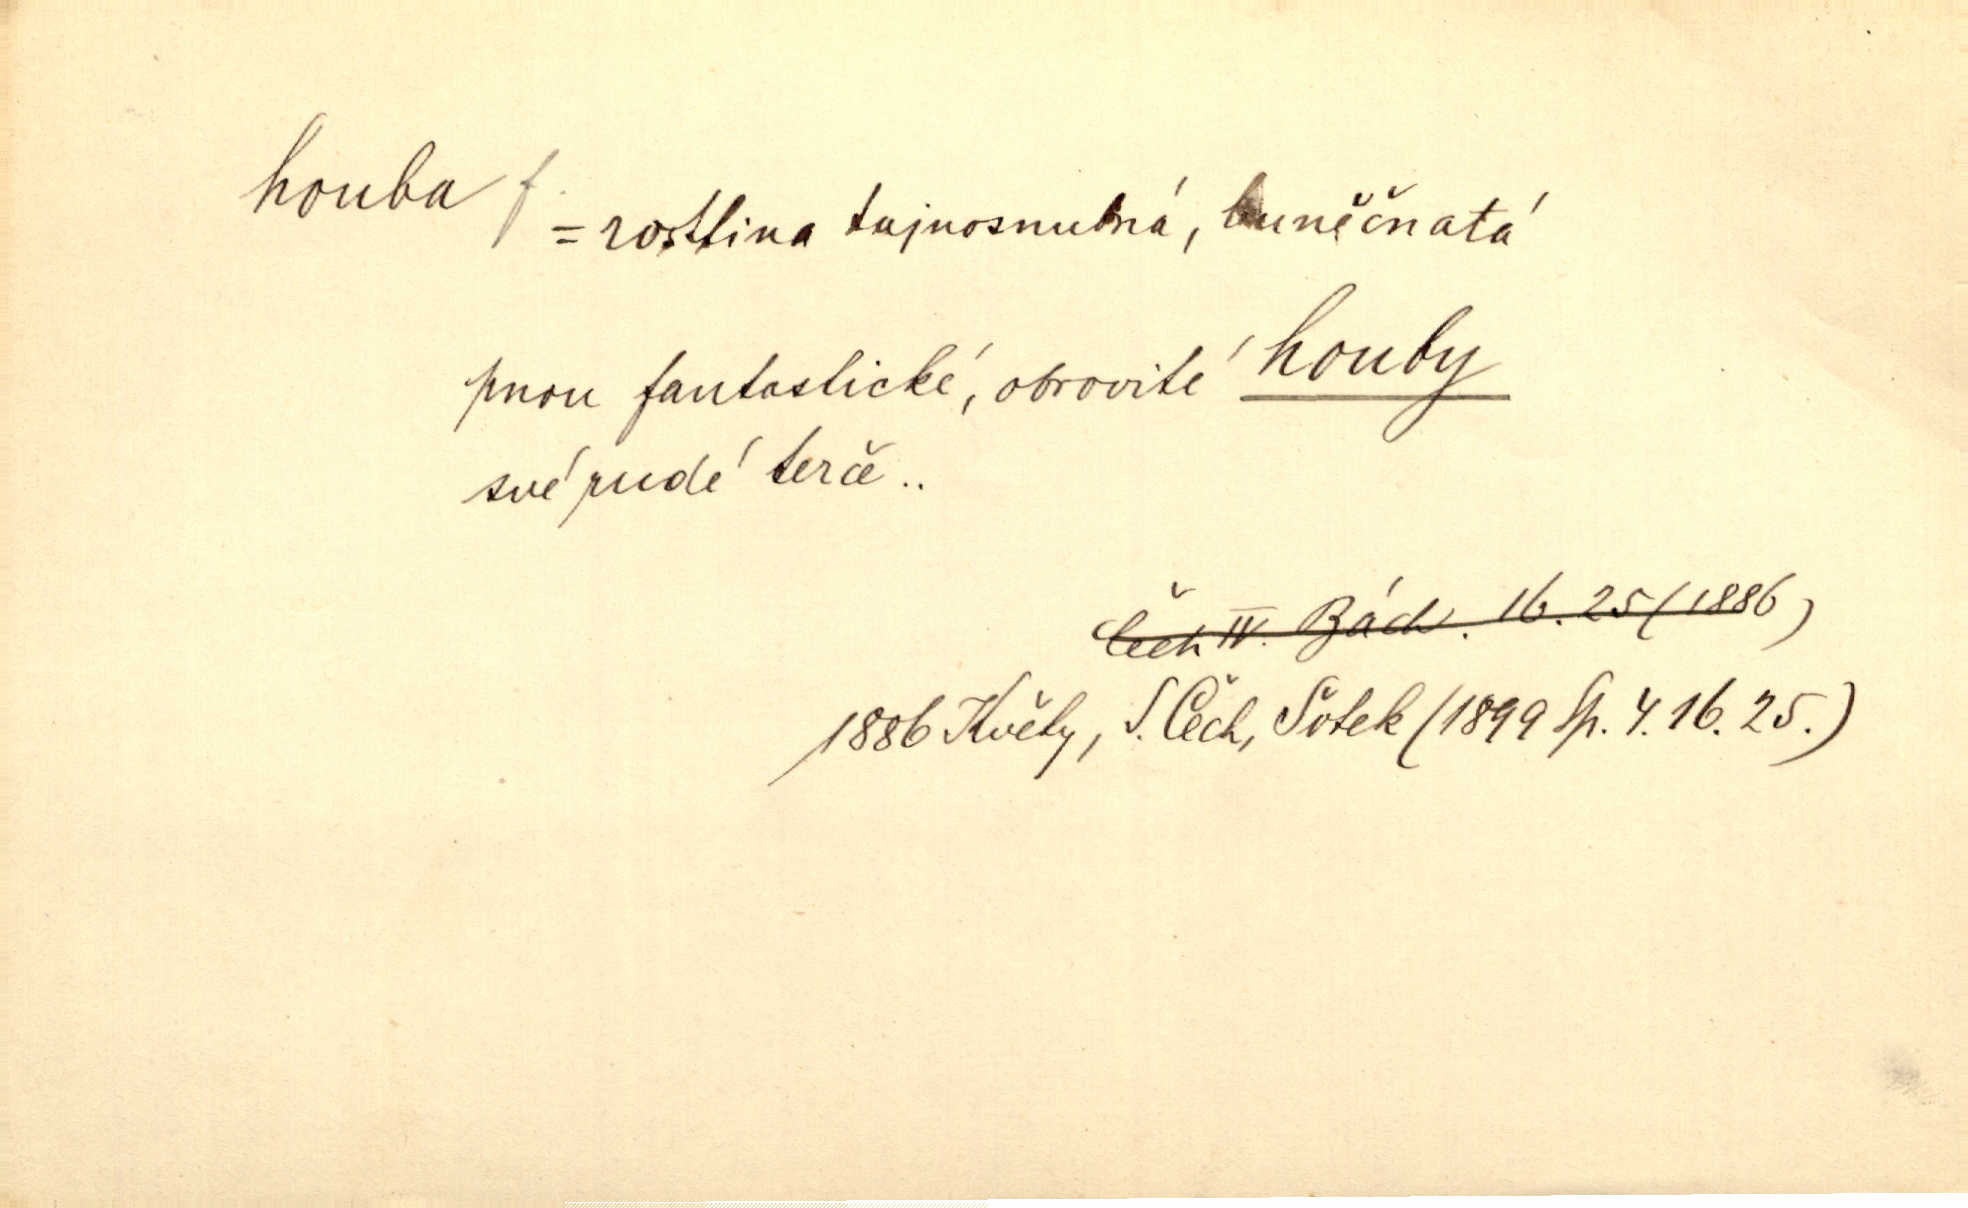 houba f. = rostlina tajnosnubná, buněčnatá
pnou fantastické, obrovité houby
své rudé terče ..
Čech IV. Bách. 16. 25 (1886)
1886 Květy, S. Čech, Šotek (1899 Sp. 4. 16. 25.)